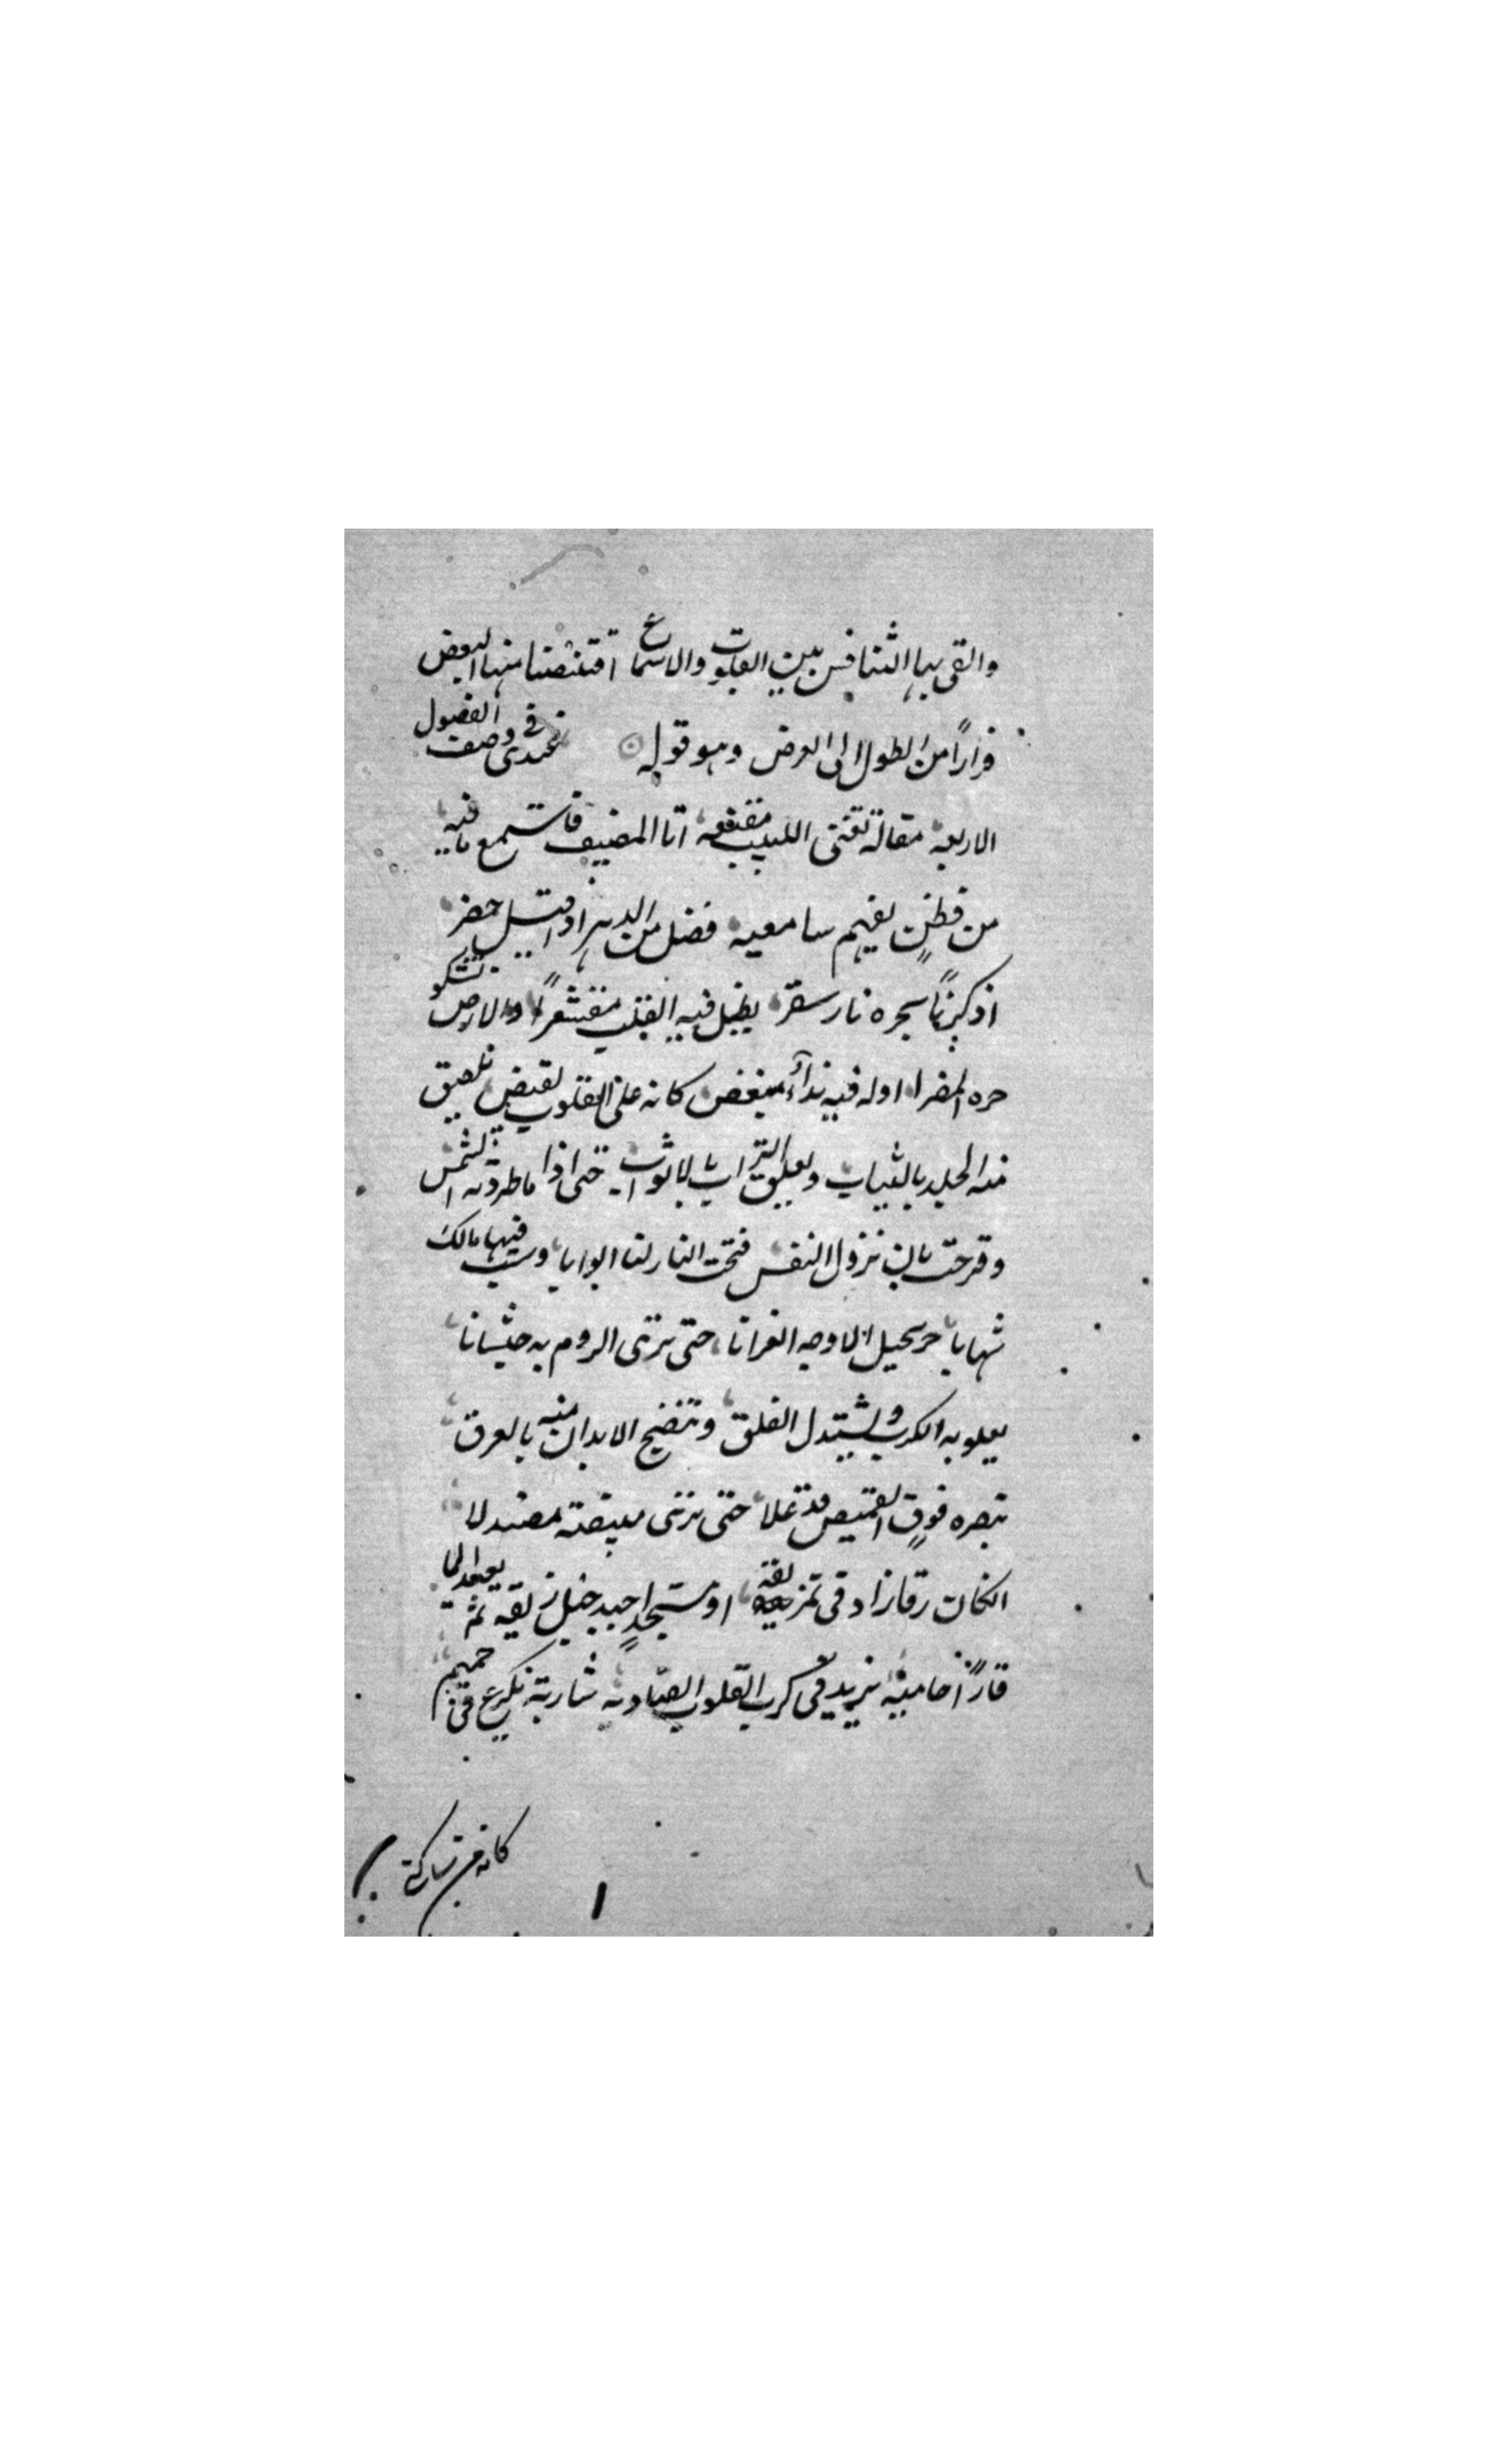 والقى بها التنافس بين القلوب والاسماع اقتنصنا منها البعض
فرارًا من الطول الى العرض وهو قوله عندى فى وصف الفصول
الاربعه مقالة تغنى اللبيب مقنعه اما المصيف فاستمع ما فيه
من فطنٍ يفهم سامعيه فصل من الدهر اذا قيل حضر
اذكرنا بحره نار سقر يظل فيه القلب مقشعرًا والارض تشكو
حره المضرا اوله فيه نداء مبغض كانه على القلوب يقبض يلصق
منه الجلد بالثياب ويعلق التراب بالاثواب حتى اذا ما طردته الشمس
وفرحت بان نزول النفس فتحت النار لنا ابوابا وشب فيها مالك
شهابا حر يحيل الاوجه الغرانا حتى نرى الروم به حبشانا
يعلو به الكرب ويشتد القلق وتنضج الابدان منه بالعرق
تبصره فوق القميص قد علا حتى نرى مبيضه مصندلا
ان كان رقا زاد فى تمزيقه او مستجدا جد حبل زيقه ثم يعيد الما
قارًا حاميه يزيد فى كرب القلوب الصاديه شاربة تكرع فى حميم
كانه من ساكنى